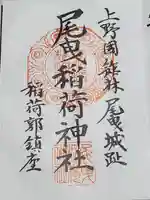 上野国館林 尾曳城趾
尾曳稲荷神社
稲荷郭鎮座